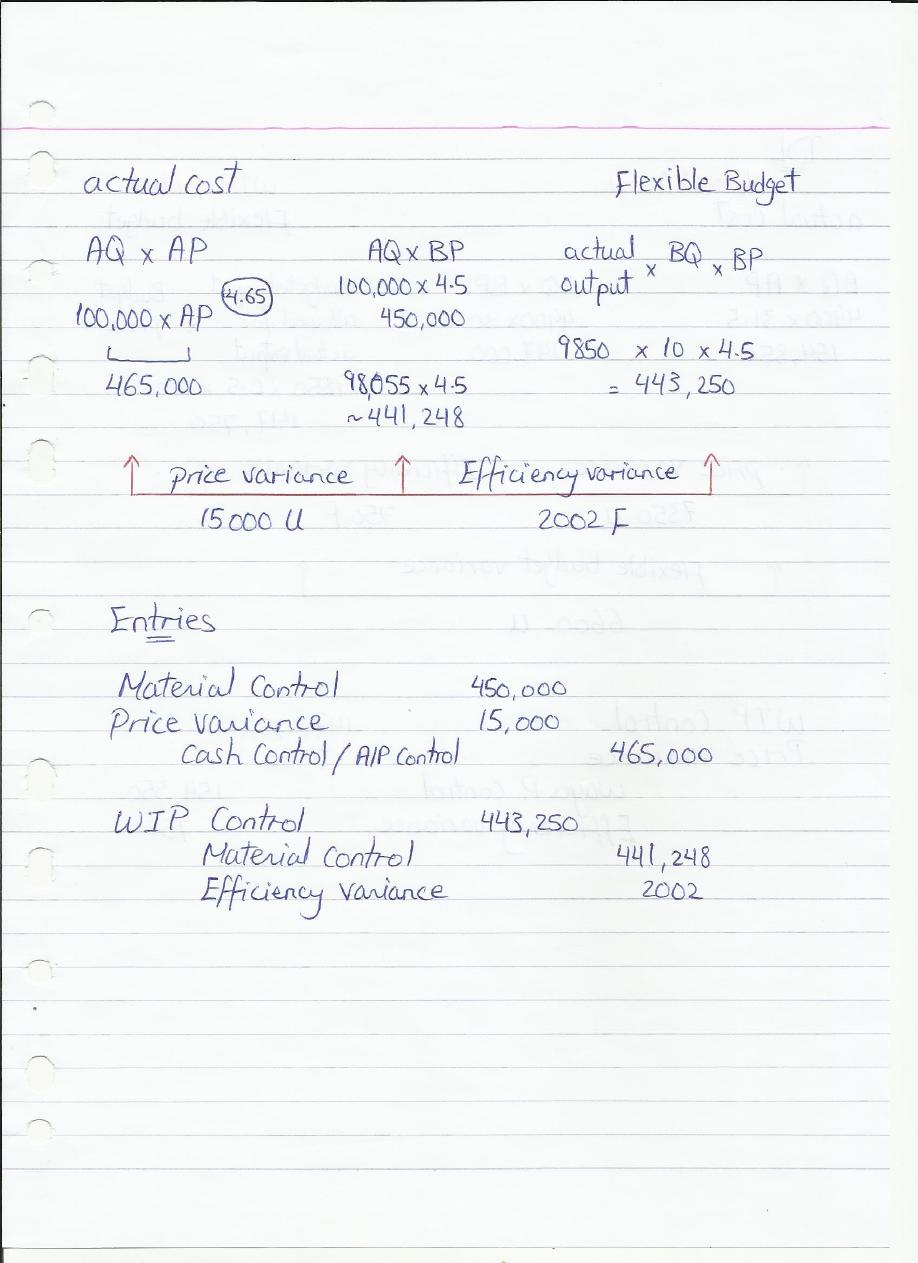 actual cost Flexible Budget
AQ x AP AQ x BP actual output x BQ x BP
100,000 x 4.5
100,000 x AP 4.65 450,000
9850 x 10 x 4.5
465,000 98,055 x 4.5 = 443,250
~441,248
Price variance Efficiency variance
15000 U 2002 F
Entries
Material Control 450,000
Price variance 15,000
Cash Control / A/P Control 465,000
WIP Control 443,250
Material Control 441,248
Efficiency variance 2002